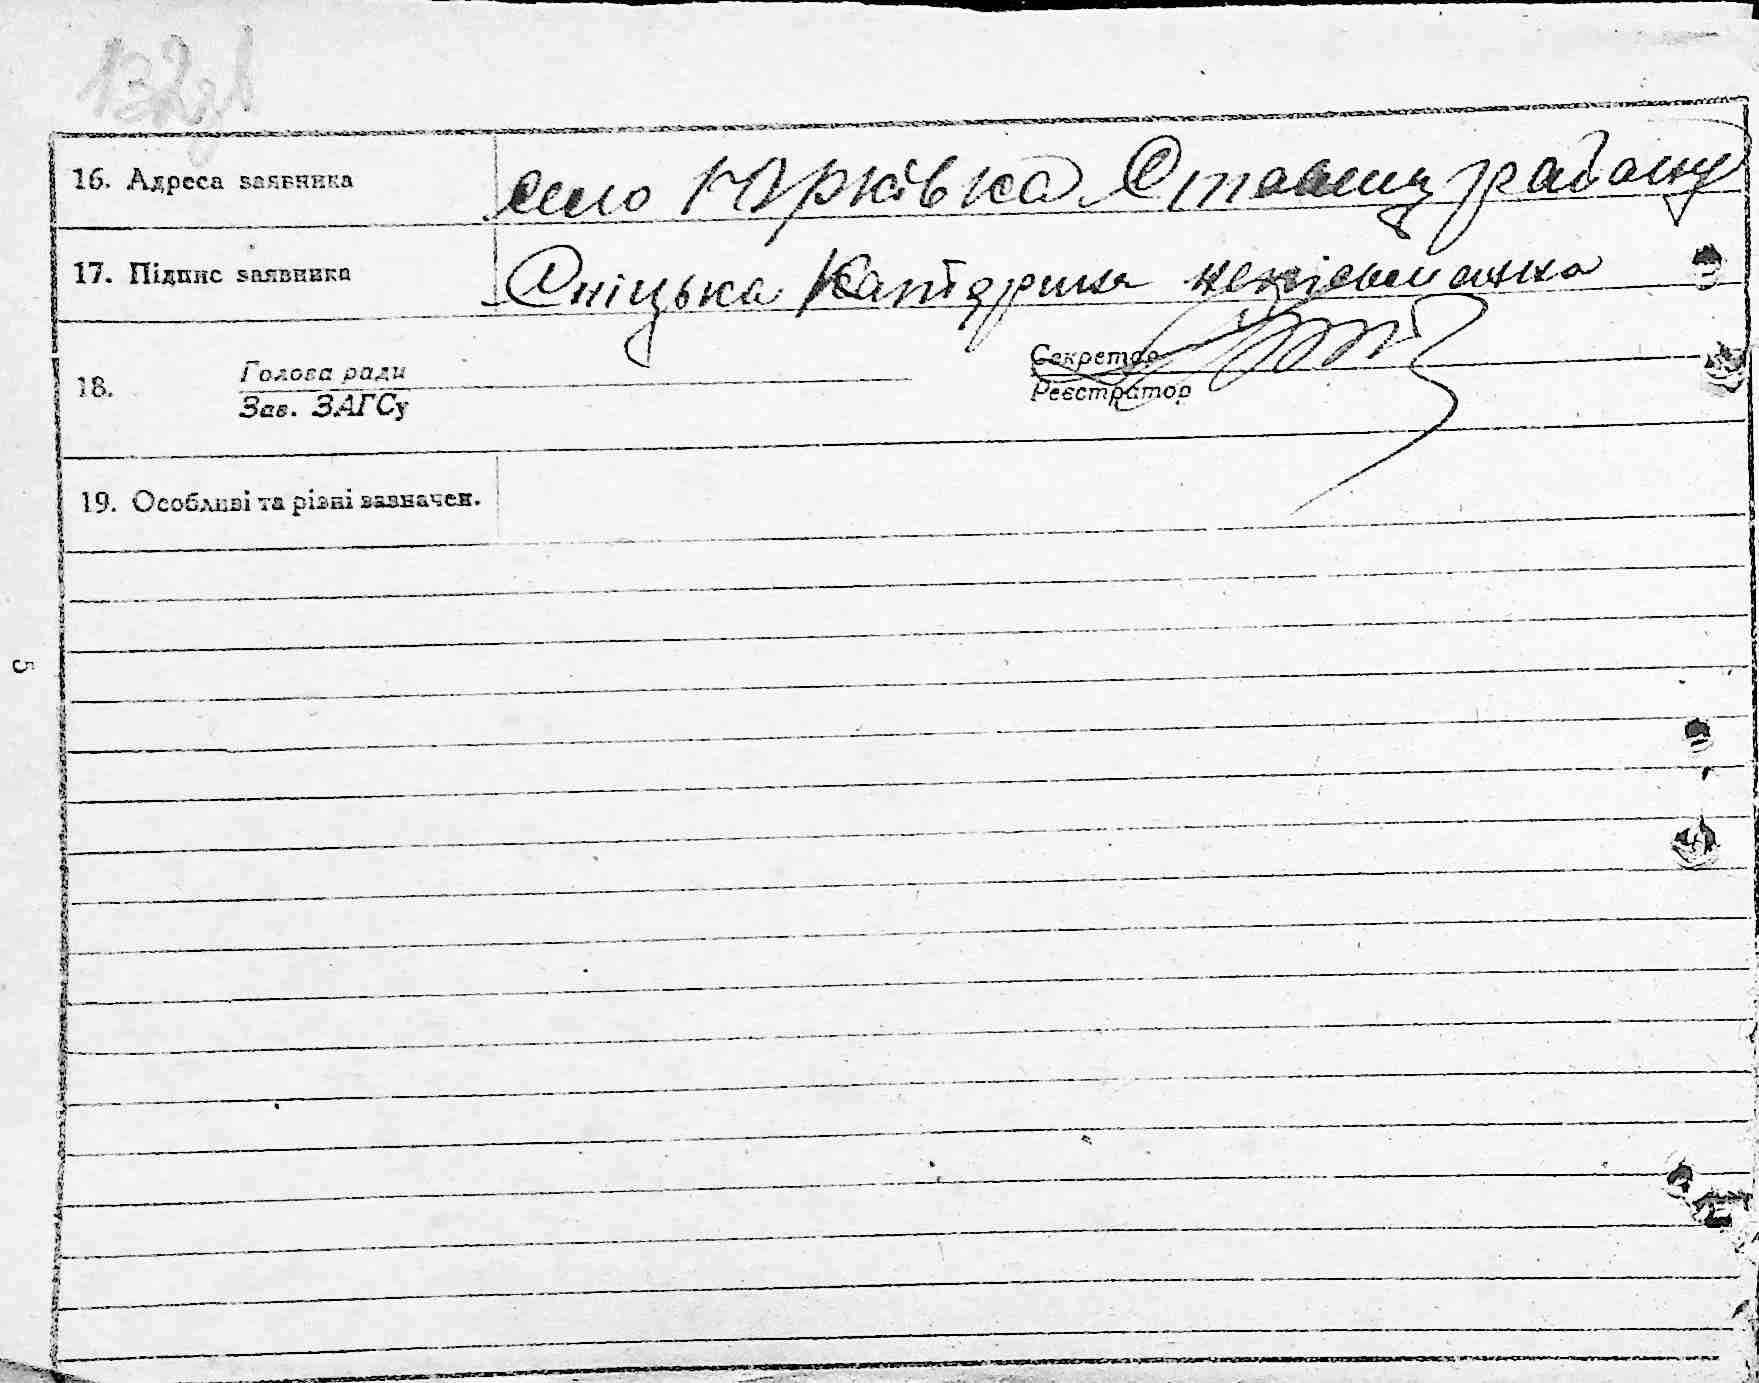 132зв
16. Адреса заявника село Юрківка Ставищ району
17. Підпис заявника Сніцька Катерина неписьменна
18. Голова ради Секретар
Зав. ЗАГСу Реєстратор
19. Особливі та різні зазначен.
5